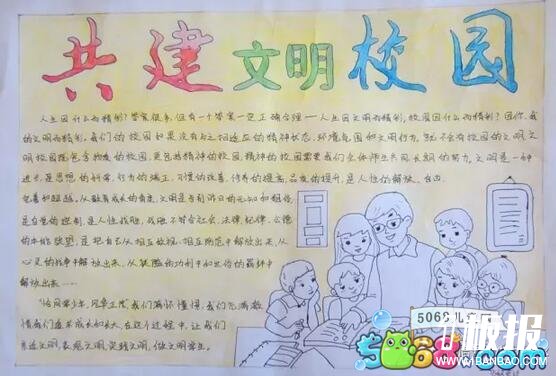 共建文明校园
人生因什么而精彩?答案很多,但有一个答案一定正确合理——人生因文明而精彩,校园因什么而精彩?因你、我
的文明而精彩,我们的校园如果没有与之相适应的精神状态、环境氛围和文明行为,就不会有校园的文明。文
明校园既包含物质的校园,更包括精神的校园,精神的校园需要我们全体师生共同长期的努力。文明是一种
进步,是思想的升华、行为的端正、习惯的改善、修养的提高、品质的提升,是人性的解放、自由、
完善和超越。从教育成长的角度,文明是告别昨日的无知和粗俗,
是自觉的控制,是人性战胜、战胜不符合社会、法律、纪律、公德
的本能欲望,是把自己从相互敌视、相互防范中解放出来,从
心灵的战争中解放出来,从狭隘的功利中和世俗的羁绊中
解放出来……
"恰同学少年,风华正茂"我们满怀憧憬,我们充满激
情,我们追求成长和长大,在这个过程中,让我们
亲近文明、表现文明、实践文明,做文明学生。
5068儿童网
5068.com
极报
WWW.1BANBAO.COM